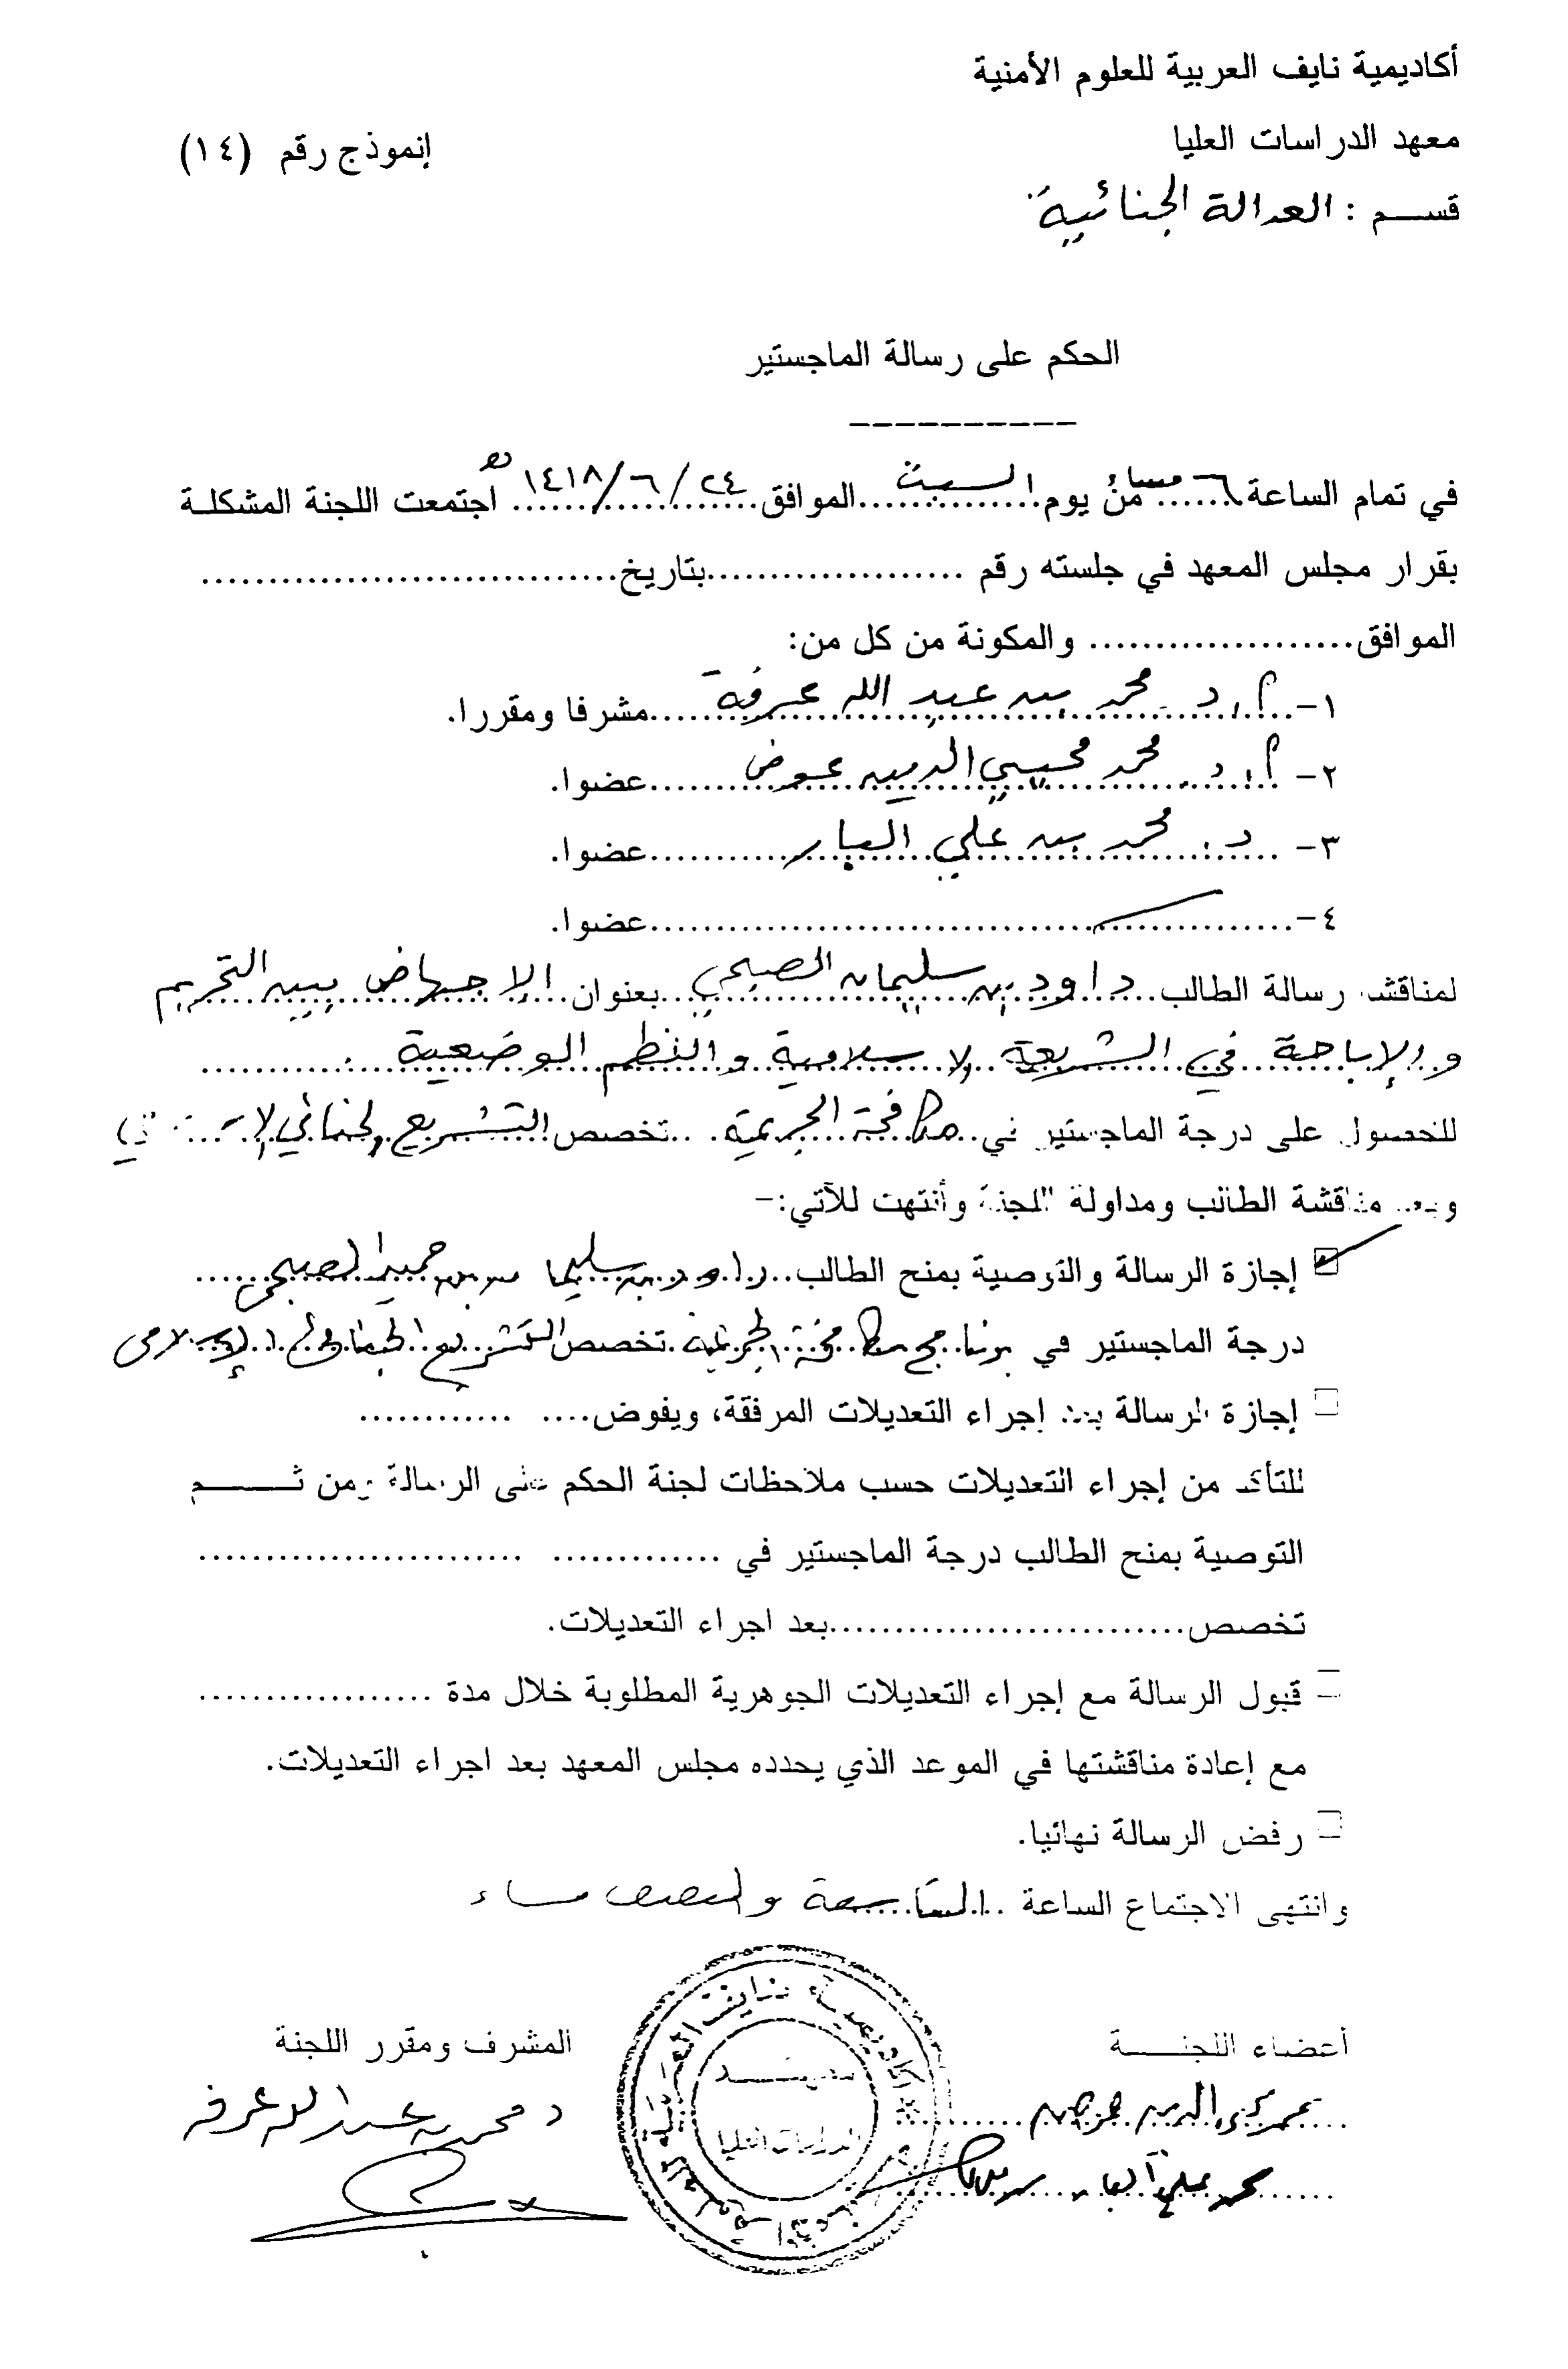 أكاديمية نايف العربية للعلوم الأمنية
معهد الدراسات العليا
إنموذج رقم (١٤)
قســـم : العدالة الجنائية
الحكم على رسالة الماجستير
----------
في تمام الساعة ٦ مساءً من يوم السبت الموافق ٢٤/٦/١٤١٨هـ اجتمعت اللجنة المشكلة
بقرار مجلس المعهد في جلسته رقم ...................بتاريخ...............................
الموافق.................... والمكونة من كل من:
١- أ.د. محمد بن عبد الله عرفة مشرفا ومقررا.
٢- أ.د. محمد محيي الدين عوض عضوا.
٣- د. محمد بن علي البار عضوا.
٤-.................................................عضوا.
لمناقشة رسالة الطالب داود بن سليمان الصبحي بعنوان الإجهاض بين التحريم
والإباحة في الشريعة الإسلامية والنظم الوضعية
للحصول على درجة الماجستير في مكافحة الجريمة تخصص التشريع الجنائي
وبعد مناقشة الطالب ومداولة اللجنة وأنتهت للآتي:-
إجازة الرسالة والتوصية بمنح الطالب داود بن سليمان بن حميد الصبحي
درجة الماجستير في برنامج مكافحة الجريمة تخصص التشريع الجنائي الإسلامى
إجازة الرسالة بعد إجراء التعديلات المرفقة، ويفوض.... ............
للتأكد من إجراء التعديلات حسب ملاحظات لجنة الحكم على الرسالة ومن ثـــــم
التوصية بمنح الطالب درجة الماجستير في ............. .........................
تخصص...........................بعد اجراء التعديلات.
قبول الرسالة مع إجراء التعديلات الجوهرية المطلوبة خلال مدة ..................
مع إعادة مناقشتها في الموعد الذي يحدده مجلس المعهد بعد اجراء التعديلات.
رفض الرسالة نهائيا.
وانتهى الاجتماع الساعة والنصف مساء
أعضاء اللجنـــــة
المشرف ومقرر اللجنة
د محمد بن عبد الله عرفه
محمد علي البار
أكاديمية نايف العربية للعلوم الأمنية
معهـــد
الدراسات العليا